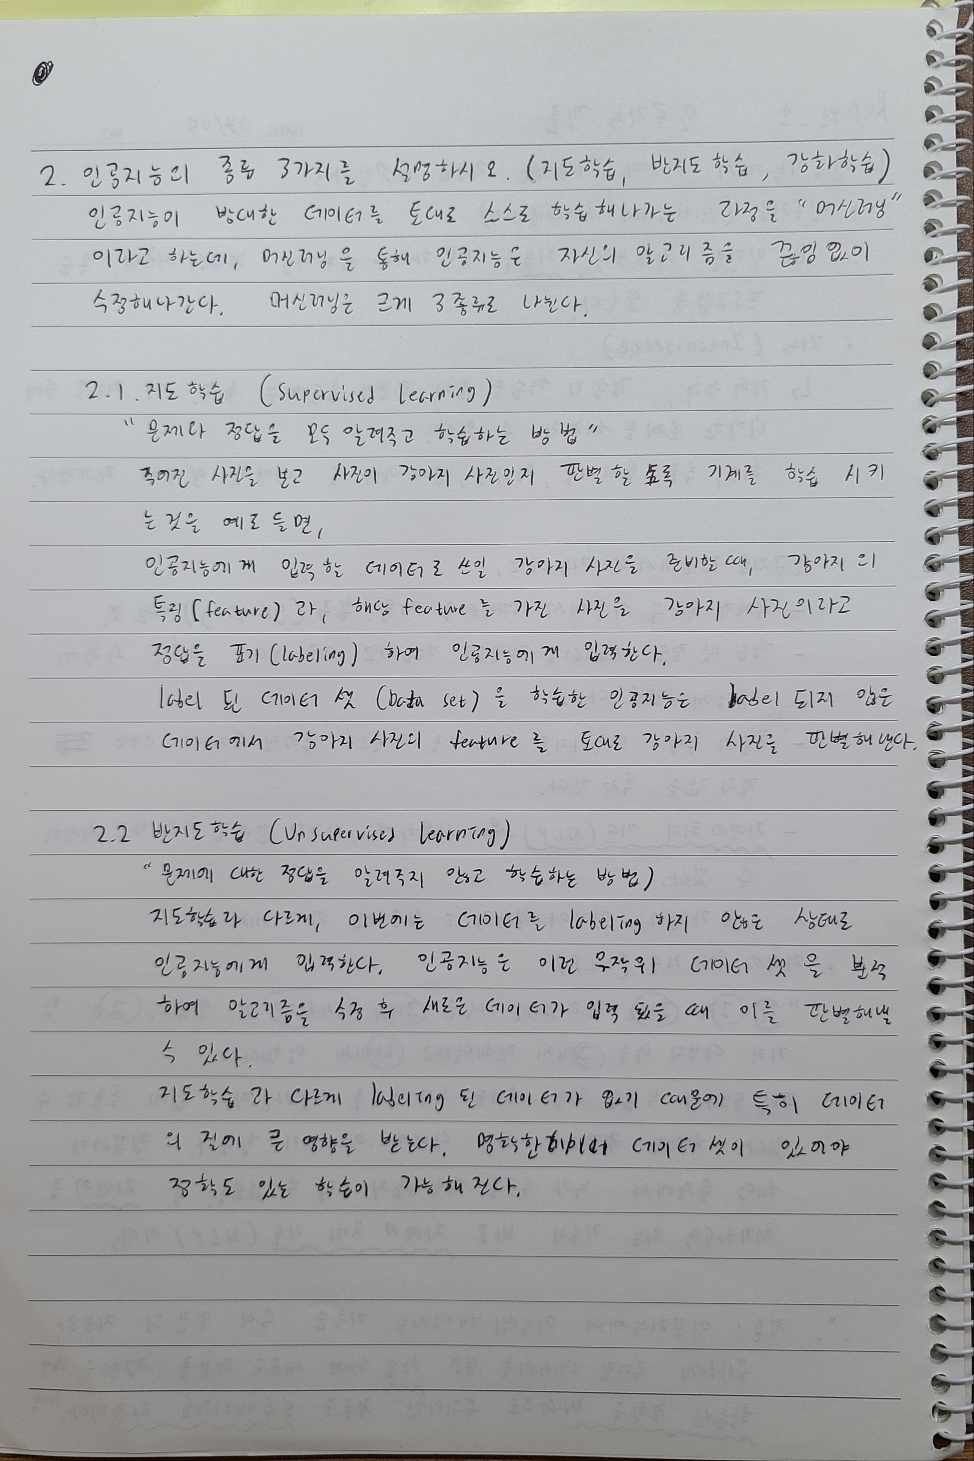 2. 인공지능의 종류 3가지를 설명하시오. (지도학습, 반지도학습, 강화학습)
인공지능이 방대한 데이터를 토대로 스스로 학습해나가는 과정을 "머신러닝"
이라고 하는데, 머신러닝을 통해 인공지능은 자신의 알고리즘을 끊임없이
수정해나간다. 머신러닝은 크게 3종류로 나뉜다.
2.1. 지도학습 (Supervised Learning)
"문제와 정답을 모두 알려주고 학습하는 방법"
주어진 사진을 보고 사진이 강아지 사진인지 판별할 도록 기계를 학습 시키
는것을 예로 들면,
인공지능에게 입력할 데이터로 쓰일 강아지 사진을 준비할때, 강아지의
특징(feature) 과, 해당 feature를 가진 사진을 강아지 사진이라고
정답을 표기(labeling) 하여 인공지능에게 입력한다.
label 된 데이터 셋 (Data set)을 학습한 인공지능은 label 되지 않은
데이터에서 강아지 사진의 feature를 토대로 강아지 사진을 판별해낸다.
2.2 반지도학습 (Unsupervised Learning)
"문제에 대한 정답을 알려주지 않고 학습하는 방법)
지도학습과 다르게, 이번에는 데이터를 labeling하지 않은 상태로
인공지능에게 입력한다. 인공지능은 이런 무작위 데이터 셋을 분석
하여 알고리즘을 수정 후 새로운 데이터가 입력 됬을 때 이를 판별해낼
수 있다.
지도학습과 다르게 labeling 된 데이터가 없기 때문에 특히 데이터
의 질에 큰 영향을 받는다. 명확한 데이터셋이 있어야
정확도 있는 학습이 가능해진다.